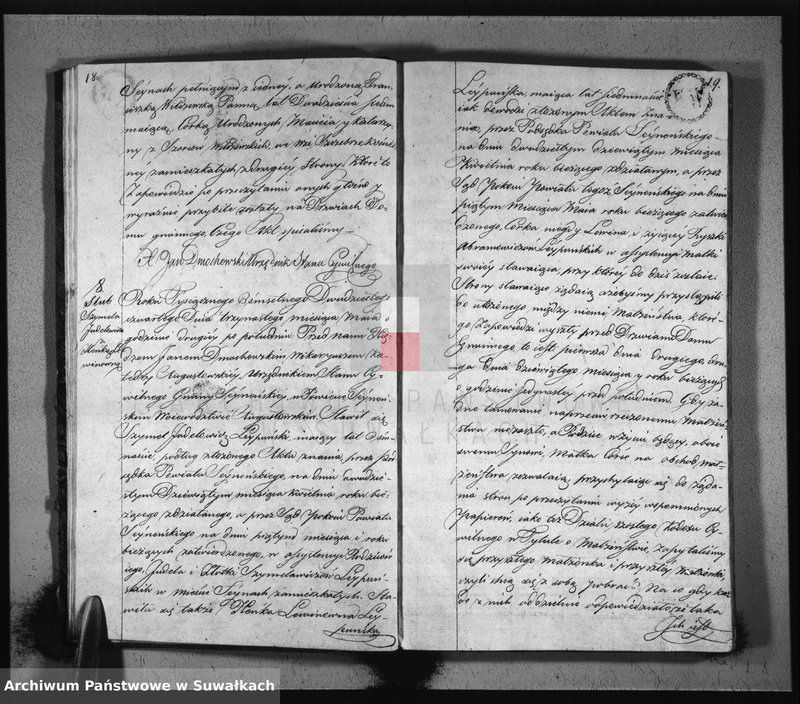 18
Seynach położonym z iedney, a Urodzoną Fran-
ciszką Panną, lat Dwadzieścia siedm
maiącą, Córką Urodzonych Macieia y Katarzy-
ny z
ney zamieszkałych z drugiey Strony. Które to
Zapowiedzie po przeczytaniu onych głośno y
wyraźnie przybite zostały na Drzwiach Do-
mu gminnego, czego Akt spisaliśmy.
X Jan Dmochowski Urzędnik Stanu Cywilnego
8
Slub
Szymela
Judelowicza
z Henką Le-
winowną
Roku Tysiącznego Osmsetnego Dwudziestego
czwartego, Dnia trzynastego miesiąca Maia o
godzinie drugiey po południu. Przed nami Xię-
dzem Janem Dmochowskim Wikaryuszem Ka-
tedry Augustowskiey, Urzędnikiem Stanu Cy-
wilnego Gminy Seynskiey, w Powiecie Seyneń-
skim Woiewództwie Augustowskim. Stawił się
Szymel Judelowicz Leypuński, maiący lat Ośm-
naście podług złożonego Aktu znania, przez Pod-
sędka Powiatu Seyneńskiego na dniu dwudzie-
stym Dziewiątym miesiąca Kwietnia roku bie-
żącego zdziałanego, a przez Sąd Pokoiu Powiatu
Seyneńskiego na dniu piątym miesiąca i roku
bieżących zatwierdzonego, w assystencyi Rodziców
iego, Judela i Złotki Szymelowiczów Leypuń-
skich w mieście Seynach zamieszkałych. Sta-
wiła się także Henka Lewinowna Ley-
puńska,
19.
Leypuńska, maiąca lat siedmnaście
iak dowodzi złożonym Aktem zna-
nia, przez Podsędka Powiatu Seyneńskiego
na dniu dwudziestym dziewiątym miesiąca
Kwietnia roku bieżącego zdziałanym, a przez
Sąd Pokoiu Powiatu tegoż Seyneńskiego na dniu
piątym miesiąca Maia roku bieżącego zatwier-
dzonego, Córka niegdy Lewina, i żyiącey Ryszki
Abramowiczow Leypuńskich w assystencyi Matki
swoiey stawaiąca, przy którey do dziś zostaie.
Strony stawaiące żądaią ażebyśmy przystąpili
do ułożonego między niemi Małżeństwa, które-
go Zapowiedzi wyszły przed Drzwiami Domu
Gminnego, to iest: pierwsza dnia drugiego, dru-
ga dnia dziewiątego miesiąca y roku bieżących
o godzinie iedynastey przed południem. Gdy żad-
ne tamowanie naprzeciw rzeczonemu Małżeń-
stwu niezaszło, a Rodzice w życiu będący, obec-
swemu Synowi, Matka Córce na obchod mał-
żeństwa zezwalaią, przychylaiąc się do żąda-
nia stron po przeczytaniu wyżey wspomnionych
Papierów, iako też Działu szóstego Kodexu Cy-
wilnego w Tytule o Małżeństwie, zapytaliśmy
się przyszłego małżonka i przyszłey małżonki
czyli chcą się z sobą pobrać? Na co gdy każ-
de z nich oddzielnie odpowiedziało, iż taka
Ich iest
Archiwum Państwowe w Suwałkach